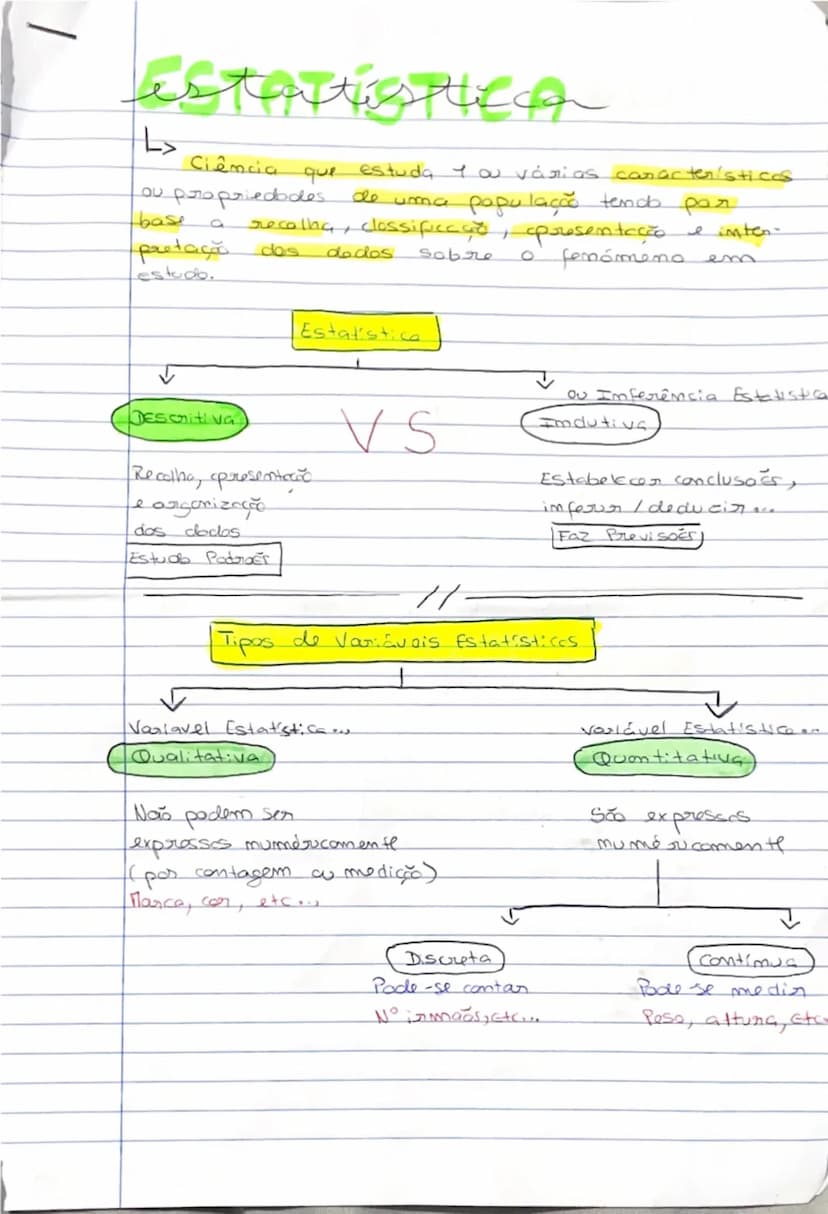 ESTATÍSTICA
estatística
↳ Ciência que estuda 1 ou várias características
ou propriedades de uma população tendo por
base a recolha, classificação, apresentação e inter-
pretação dos dados sobre o fenómeno em
estudo.
Estatística
ou Inferência Estatística
Descritiva
VS
Indutiva
Recolha, apresentação
e organização
dos dados
Estuda Padroẽs
Estabelecer conclusoẽs,
inferir / deducir...
Faz Previsoẽs
//
Tipos de Variávais Estatísticas
Variavel Estatística...
Qualitativa
Naõ podem ser
expressas numéricamente
(por contagem ou medição)
Marca, cor, etc...
variável Estatística...
Quantitativa
São expressas
numéricamente
Discreta
Pode-se contar
Nº irmaõs, etc...
Contínua
Pode-se medir
Peso, altura, etc